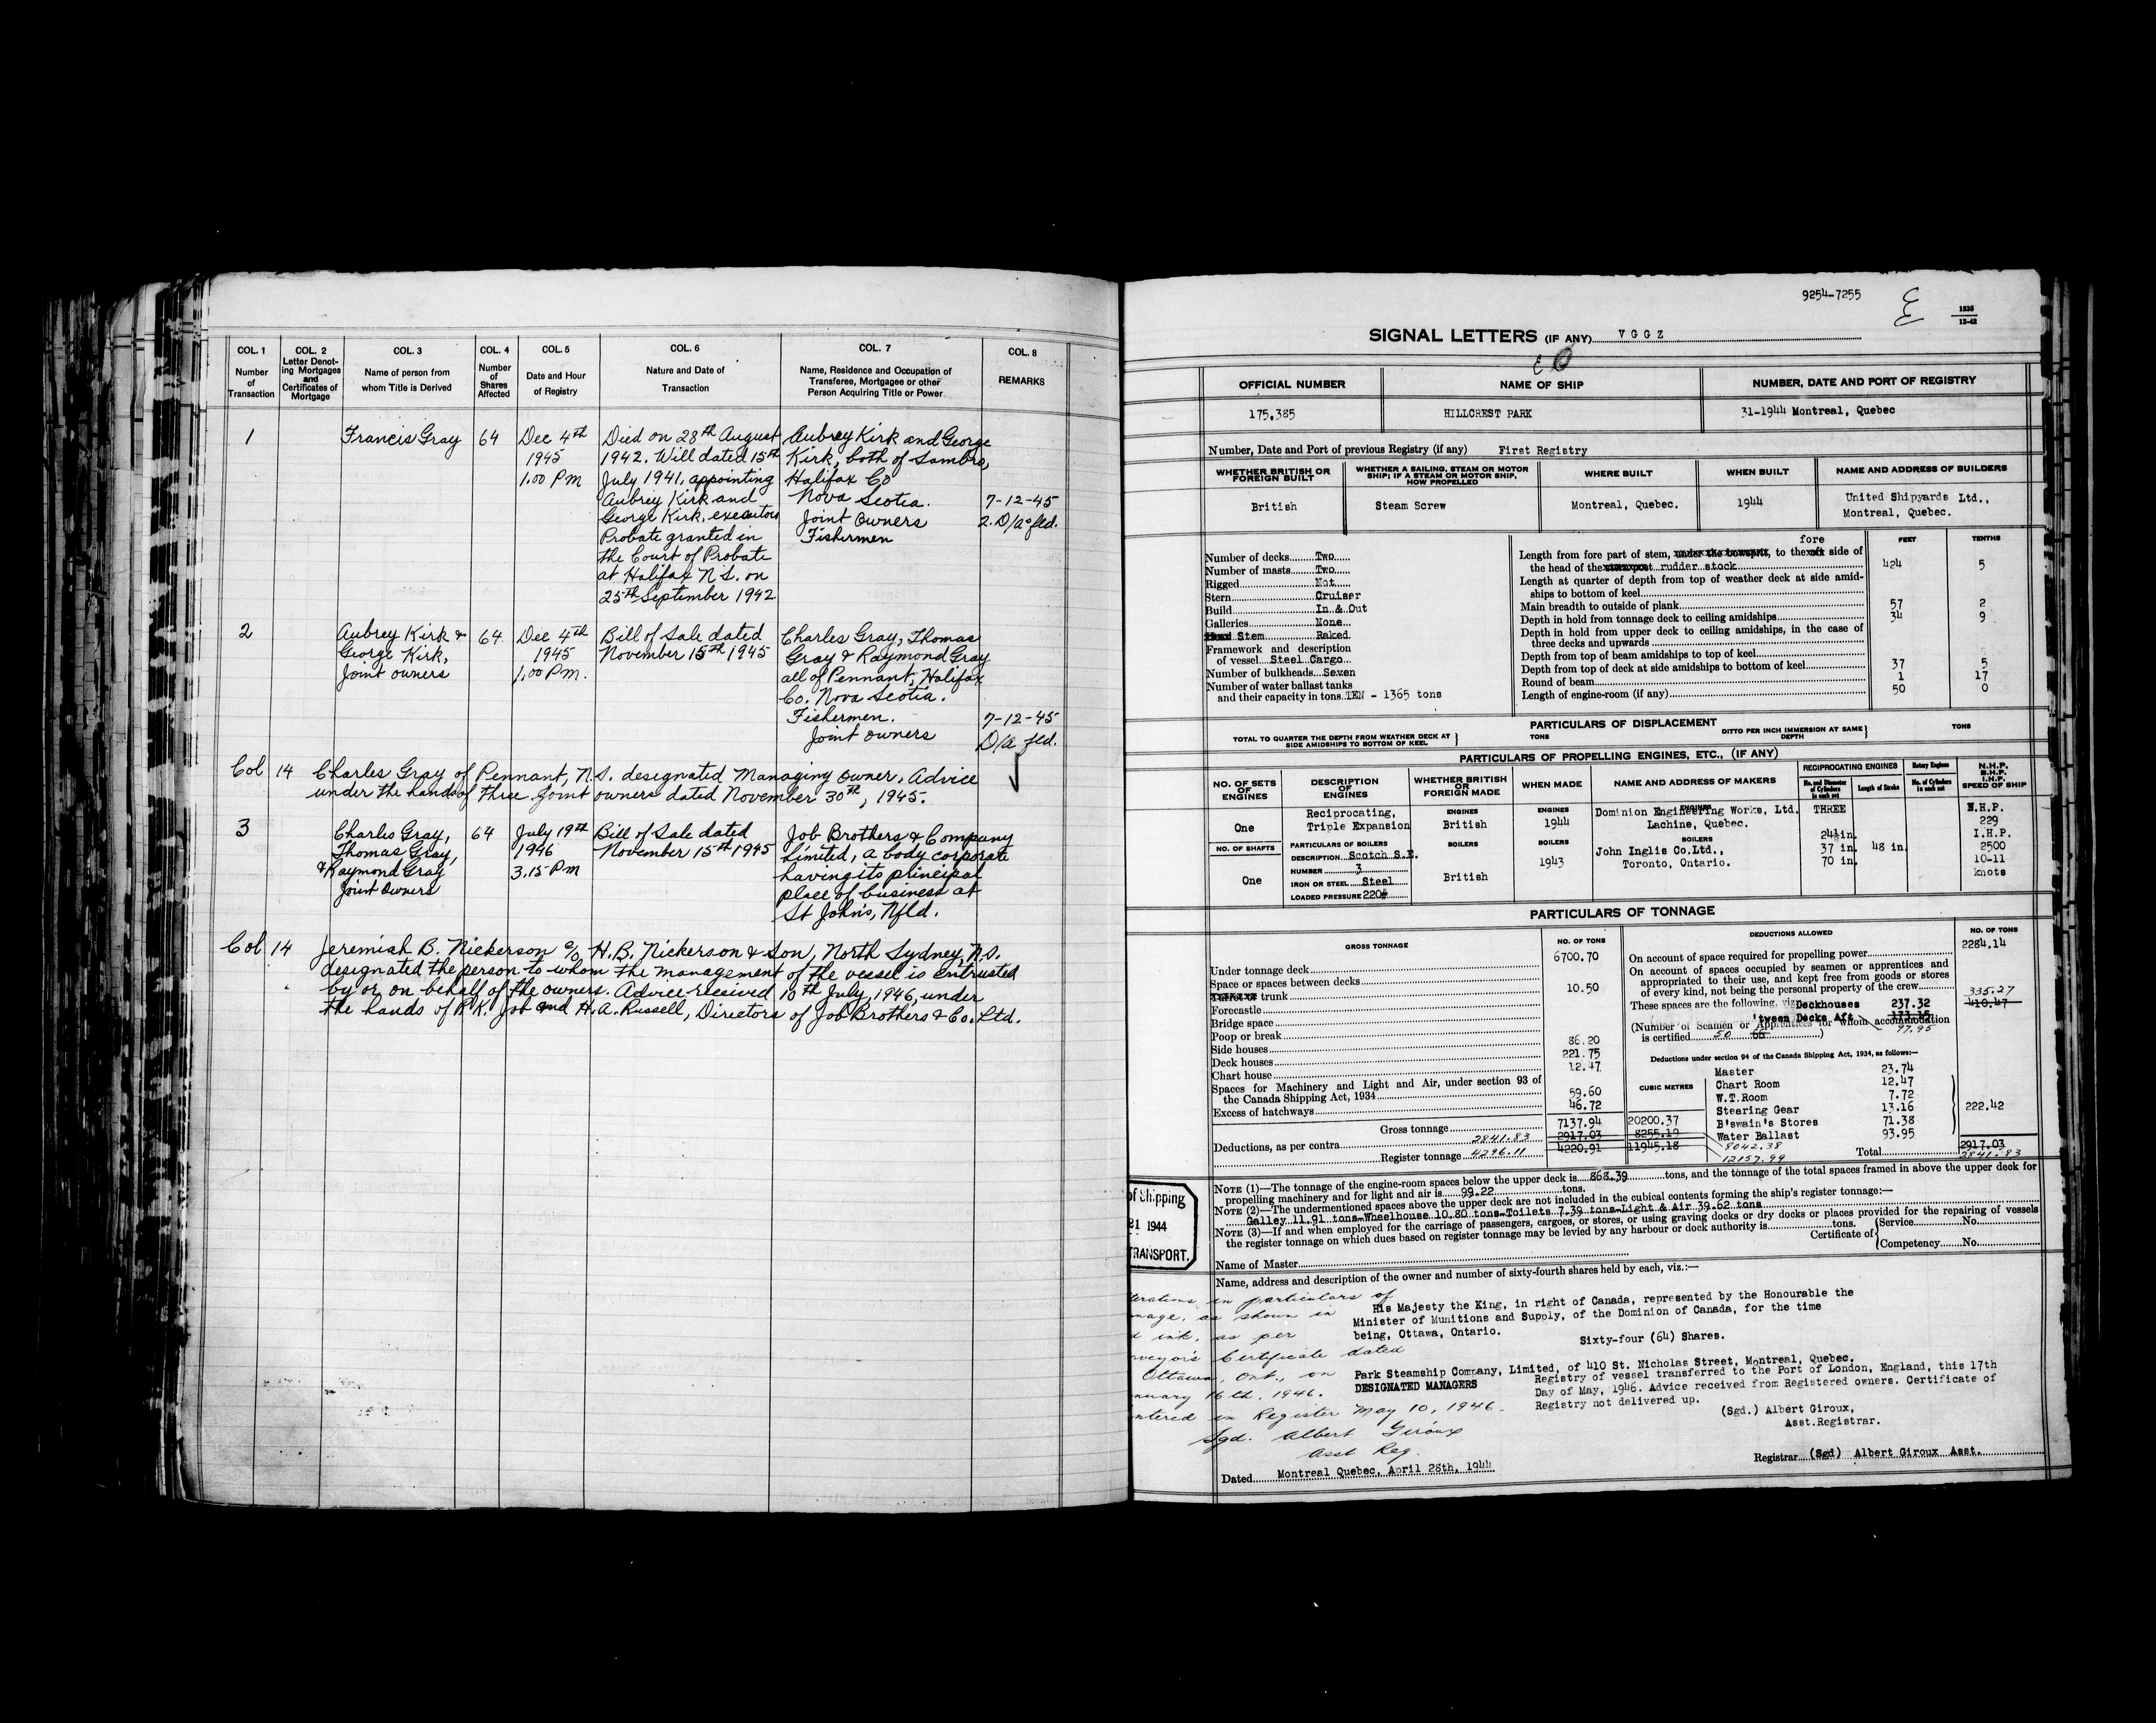 COL. 1 COL. 2 COL. 3 COL. 4 COL. 5 COL. 6 COL. 7 COL. 8
Number of Transaction
Letter Denoting Mortgages and Certificates of Mortgage
Name of person from whom Title is Derived
Number of Shares Affected
Date and Hour of Registry
Nature and Date of Transaction
Name, Residence and Occupation of Transferee, Mortgagee or other Person Acquiring Title or Power
REMARKS
1 Francis Gray 64 Dec 4th Died on 28th August Aubrey Kirk and George
1945 1942. Will dated 15th Kirk, both of Sambro,
1.00 PM July 1941, appointing Halifax Co
Aubrey Kirk and Nova Scotia. 7-12-45
George Kirk, executors Joint Owners 2. D/a fld.
Probate granted in Fishermen
the Court of Probate
at Halifax N.S. on
25th September 1942
2 Aubrey Kirk & 64 Dec 4th Bill of Sale dated Charles Gray, Thomas
George Kirk, 1945 November 15th 1945 Gray & Raymond Gray
Joint owners 1.00 PM. all of Pennant, Halifax
Co. Nova Scotia.
Fishermen. 7-12-45
Joint owners D/a fld.
Col 14 Charles Gray of Pennant, N.S. designated Managing owner. Advice
under the hands of three Joint owners dated November 30th, 1945.
3 Charles Gray, 64 July 19th Bill of Sale dated Job Brothers & Company
Thomas Gray, 1946 November 15th 1945 Limited, a body corporate
& Raymond Gray 3.15 PM having its principal
Joint Owners place of business at
St John's, Nfld.
Col 14 Jeremiah B. Nickerson c/o H.B. Nickerson & Son, North Sydney, N.S.
designated the person to whom the management of the vessel is entrusted
by or on behalf of the owners. Advice received 10th July, 1946, under
the hands of R.K. Job and H.A. Russell, Directors of Job Brothers & Co. Ltd.
9254-7255
1535
12-42
SIGNAL LETTERS (IF ANY) V G G Z
OFFICIAL NUMBER NAME OF SHIP NUMBER, DATE AND PORT OF REGISTRY
175,385 HILLCREST PARK 31-1944 Montreal, Quebec
Number, Date and Port of previous Registry (if any) First Registry
WHETHER BRITISH OR FOREIGN BUILT
WHETHER A SAILING, STEAM OR MOTOR SHIP; IF A STEAM OR MOTOR SHIP, HOW PROPELLED
WHERE BUILT WHEN BUILT NAME AND ADDRESS OF BUILDERS
British Steam Screw Montreal, Quebec. 1944 United Shipyards Ltd.,
Montreal, Quebec.
FEET TENTHS
Number of decks Two
Number of masts Two
Rigged Not
Stern Cruiser
Build In & Out
Galleries None
Head Stem Raked
Framework and description
of vessel Steel Cargo
Number of bulkheads Seven
Number of water ballast tanks
and their capacity in tons TEN - 1365 tons
fore
Length from fore part of stem, under the bowsprit, to the aft side of
the head of the sternpost rudder stock 424 5
Length at quarter of depth from top of weather deck at side amid-
ships to bottom of keel
Main breadth to outside of plank 57 2
Depth in hold from tonnage deck to ceiling amidships 34 9
Depth in hold from upper deck to ceiling amidships, in the case of
three decks and upwards
Depth from top of beam amidships to top of keel
Depth from top of deck at side amidships to bottom of keel 37 5
Round of beam 1 17
Length of engine-room (if any) 50 0
PARTICULARS OF DISPLACEMENT
TOTAL TO QUARTER THE DEPTH FROM WEATHER DECK AT SIDE AMIDSHIPS TO BOTTOM OF KEEL
TONS
DITTO PER INCH IMMERSION AT SAME DEPTH
TONS
PARTICULARS OF PROPELLING ENGINES, ETC., (IF ANY)
NO. OF SETS OF ENGINES
DESCRIPTION OF ENGINES
WHETHER BRITISH OR FOREIGN MADE
WHEN MADE
NAME AND ADDRESS OF MAKERS
RECIPROCATING ENGINES
No. and Diameter of Cylinders in each set
Length of Stroke
Rotary Engines
No. of Cylinders in each set
N.H.P.
B.H.P.
I.H.P.
SPEED OF SHIP
One
Reciprocating,
Triple Expansion
ENGINES
British
ENGINES
1944
ENGINES
Dominion Engineering Works, Ltd.
Lachine, Quebec.
THREE
24½in.
37 in.
70 in.
48 in.
N.H.P.
229
I.H.P.
2500
10-11
knots
NO. OF SHAFTS
One
PARTICULARS OF BOILERS
DESCRIPTION Scotch S.E.
NUMBER 3
IRON OR STEEL Steel
LOADED PRESSURE 220#
BOILERS
British
BOILERS
1943
BOILERS
John Inglis Co.Ltd.,
Toronto, Ontario.
PARTICULARS OF TONNAGE
GROSS TONNAGE NO. OF TONS
Under tonnage deck 6700.70
Space or spaces between decks
Turret or trunk 10.50
Forecastle
Bridge space
Poop or break
Side houses 86.20
Deck houses 221.75
Chart house 12.47
Spaces for Machinery and Light and Air, under section 93 of
the Canada Shipping Act, 1934 59.60
Excess of hatchways 46.72
CUBIC METRES
Gross tonnage 7137.94 20200.37
Deductions, as per contra 2841.83 2917.03 8255.19 8042.38
Register tonnage 4296.11 4220.91 11945.18 12157.99
DEDUCTIONS ALLOWED NO. OF TONS
On account of space required for propelling power 2284.14
On account of spaces occupied by seamen or apprentices and
appropriated to their use, and kept free from goods or stores
of every kind, not being the personal property of the crew 335.27
These spaces are the following, viz: Deckhouses 237.32 410.47
'tween Decks Aft 173.15
(Number of Seamen or Apprentices for whom accommodation 97.95
is certified 50 66 )
Deductions under section 94 of the Canada Shipping Act, 1934, as follows:—
Master 23.74
Chart Room 12.47
W.T.Room 7.72
Steering Gear 13.16 222.42
B'swain's Stores 71.38
Water Ballast 93.95
Total 2917.03
2841.83
NOTE (1)—The tonnage of the engine-room spaces below the upper deck is 868.39 tons, and the tonnage of the total spaces framed in above the upper deck for
propelling machinery and for light and air is 99.22 tons.
NOTE (2)—The undermentioned spaces above the upper deck are not included in the cubical contents forming the ship's register tonnage:—
Galley 11.91 tons-Wheelhouse 10.80 tons-Toilets 7.39 tons-Light & Air 39.62 tons
NOTE (3)—If and when employed for the carriage of passengers, cargoes, or stores, or using graving docks or dry docks or places provided for the repairing of vessels
the register tonnage on which dues based on register tonnage may be levied by any harbour or dock authority is tons.
Certificate of Service No.
Competency No.
Name of Master
of Shipping
21 1944
TRANSPORT.
Name, address and description of the owner and number of sixty-fourth shares held by each, viz.:—
His Majesty the King, in right of Canada, represented by the Honourable the
Minister of Munitions and Supply, of the Dominion of Canada, for the time
being, Ottawa, Ontario.
Sixty-four (64) Shares.
Park Steamship Company, Limited, of 410 St. Nicholas Street, Montreal, Quebec.
DESIGNATED MANAGERS
Registry of vessel transferred to the Port of London, England, this 17th
Day of May, 1946. Advice received from Registered owners. Certificate of
Registry not delivered up.
(Sgd.) Albert Giroux,
Asst.Registrar.
terations in particulars of
nage, as shown in
d ink, as per
rveyor's Certificate dated
Ottawa, Ont., on
nuary 16th, 1946.
ntered in Register May 10, 1946.
Sgd. Albert Giroux
Asst Reg.
Dated Montreal Quebec, April 28th, 1944
Registrar (Sgd) Albert Giroux Asst.